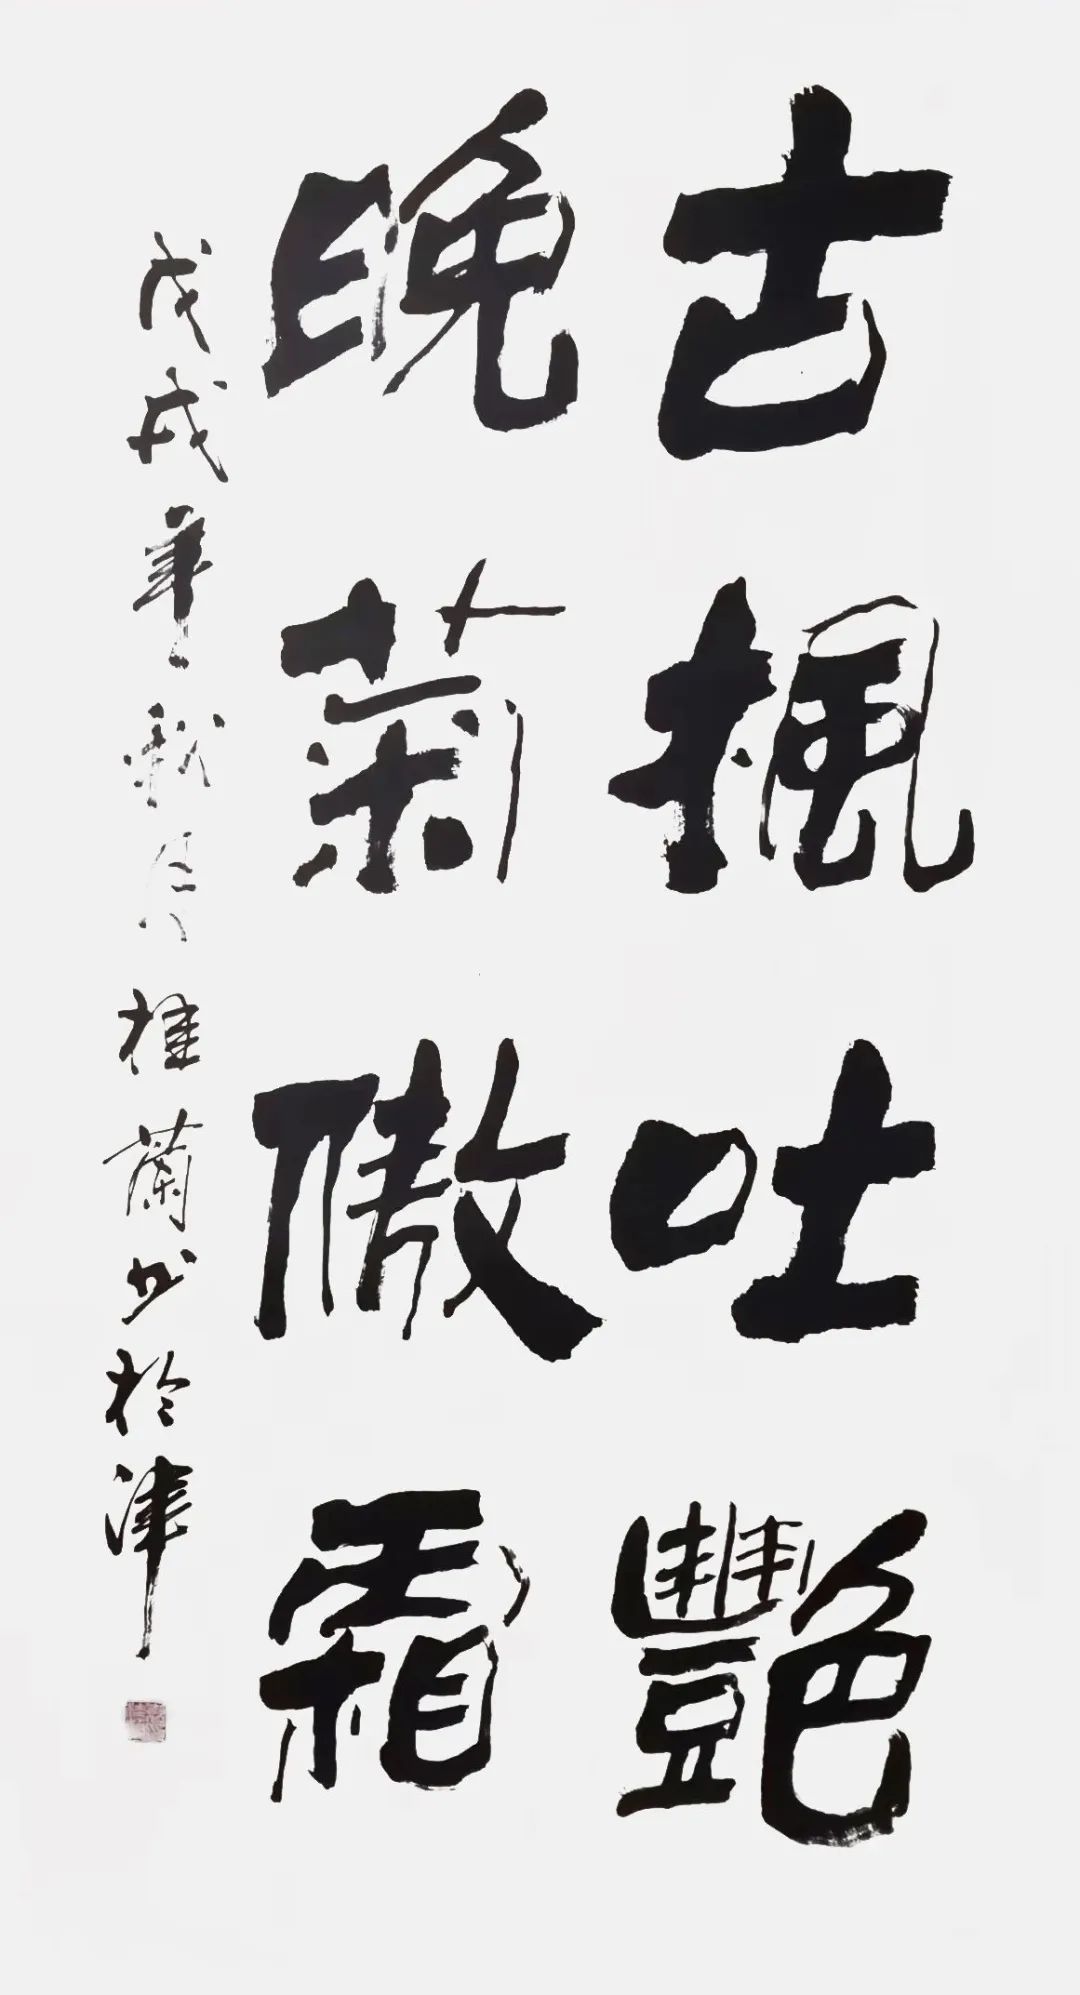 古楓吐艷
晚菊傲霜
戊戌年秋月桂蘭书於津